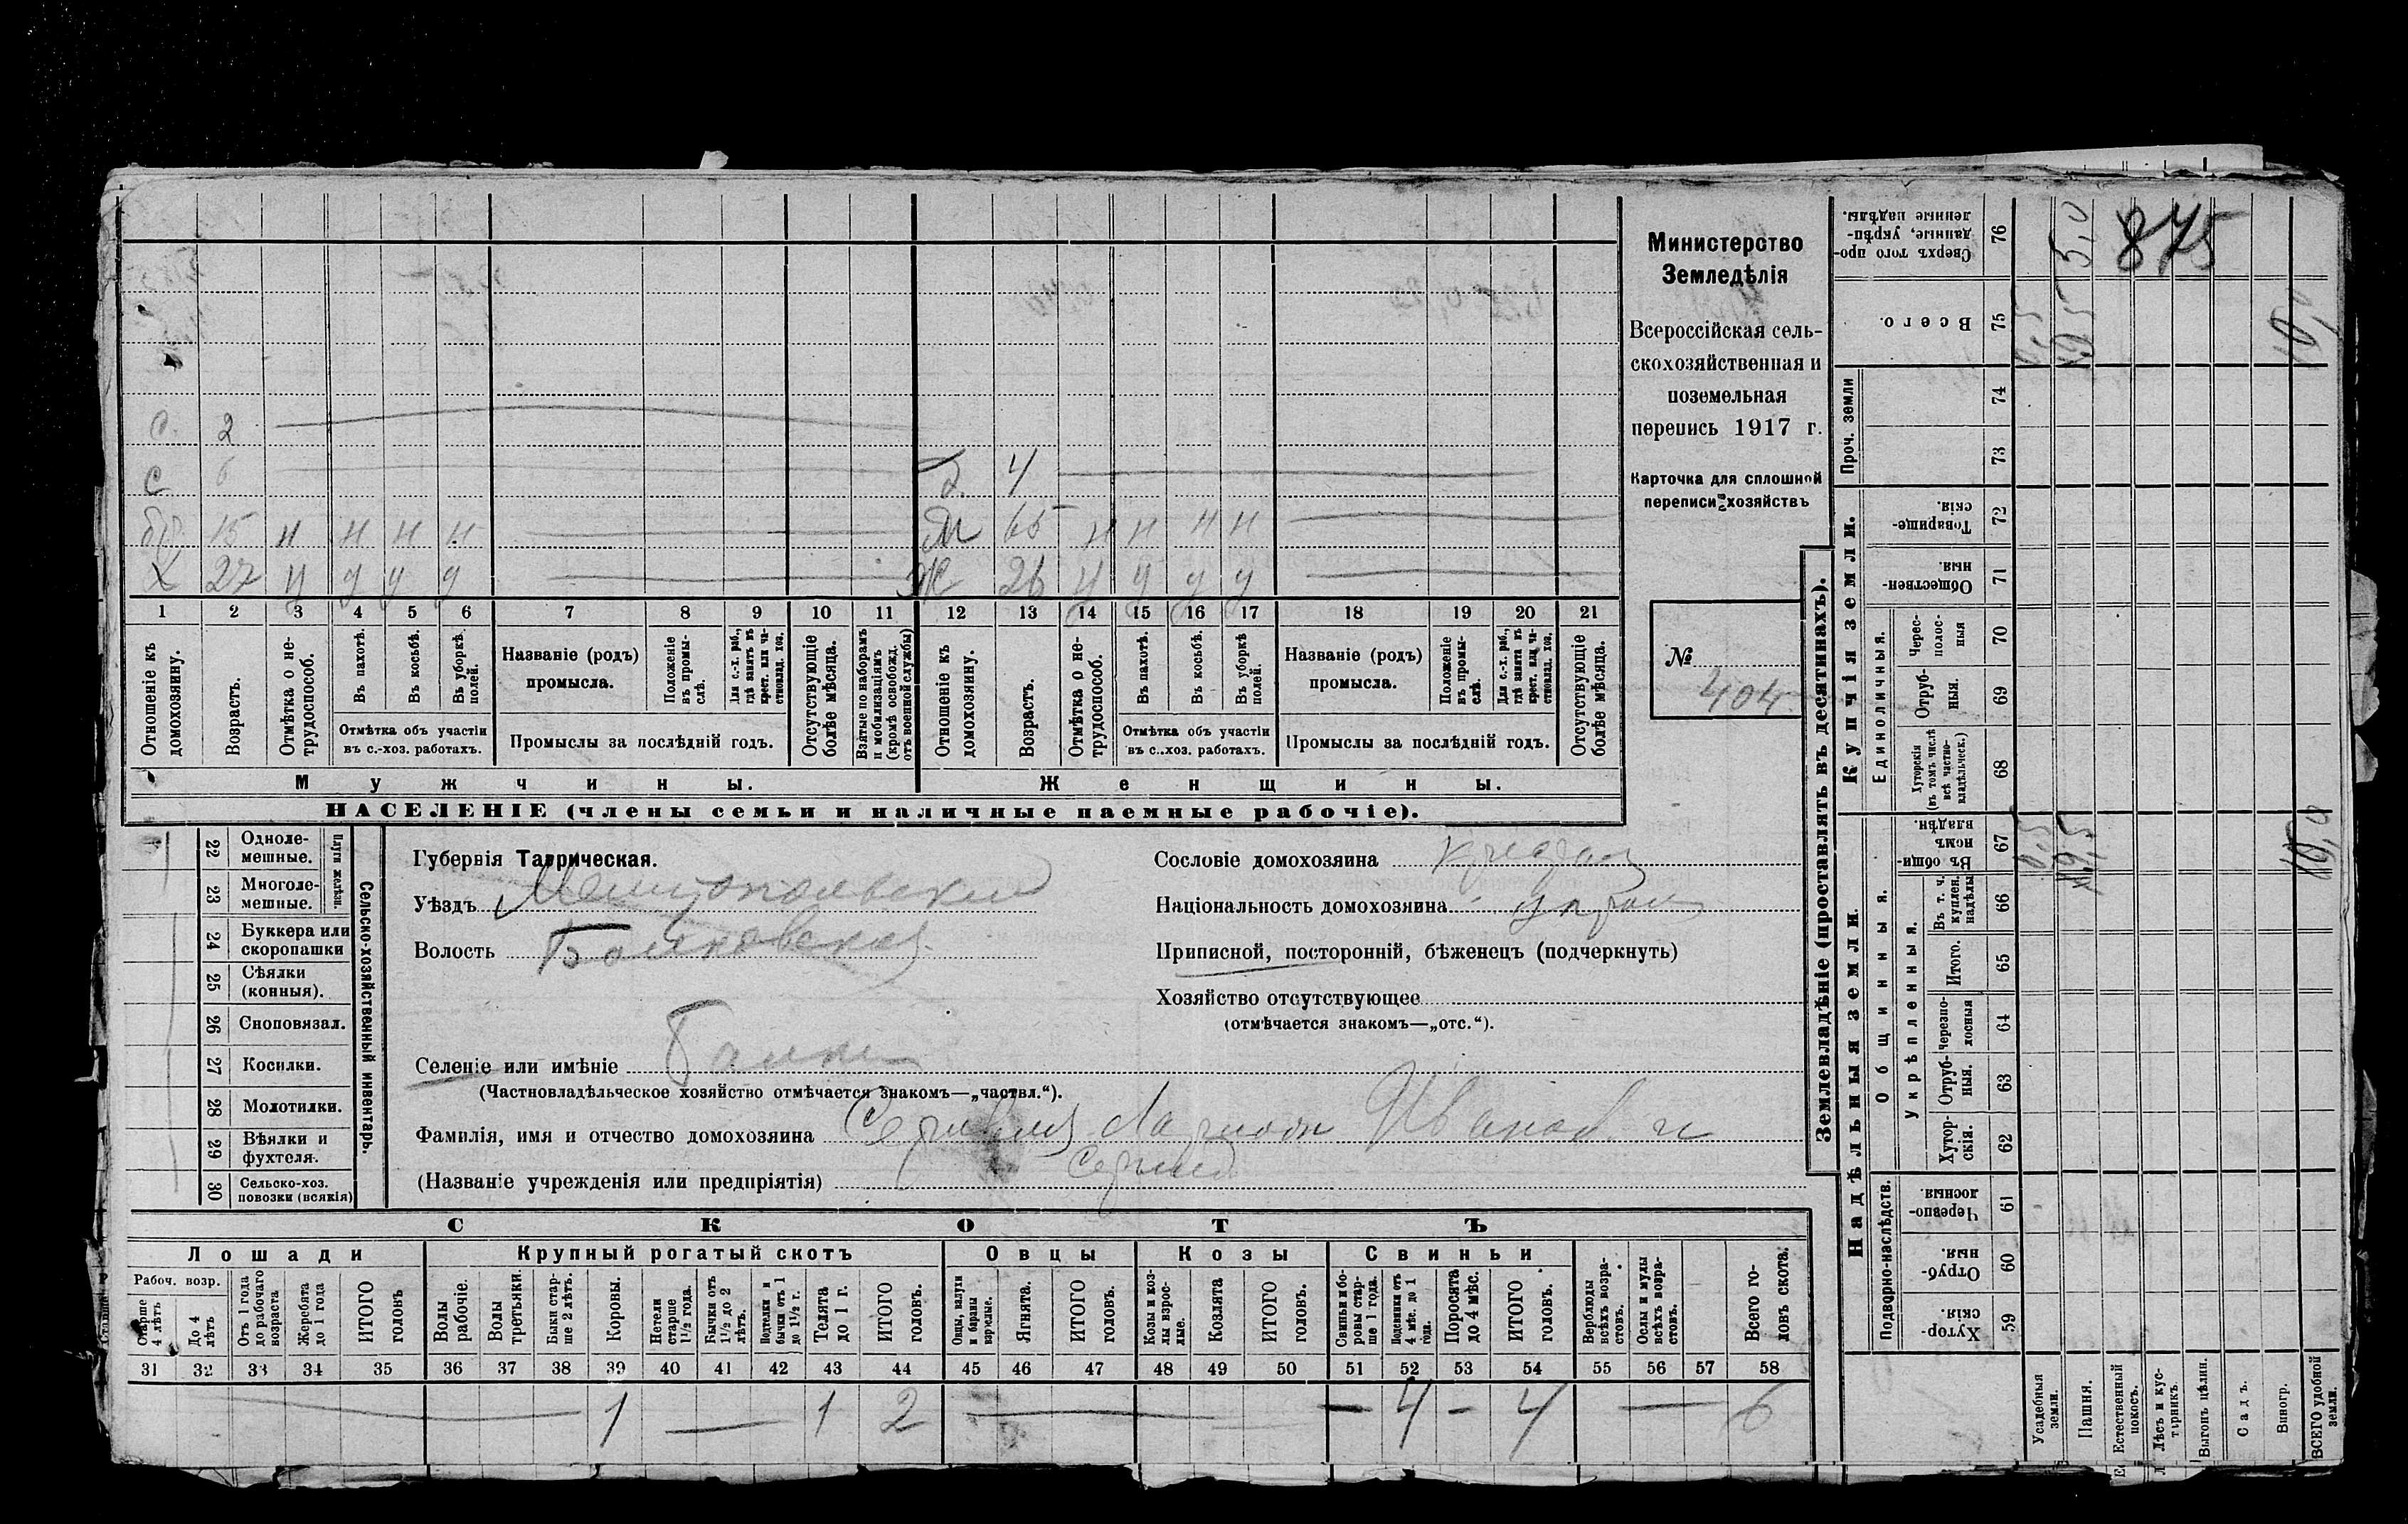 Министерство
Земледѣлія
Всероссійская сель-
скохозяйственная и
поземельная
перепись 1917 г.
Карточка для сплошной
переписи хозяйствъ
№
404
С. 2
С 6
бр. 15 н н н н
Х 27 у у у у
д. 4
М 65 н н н н
Ж 26 у у у у
1 2 3 4 5 6 7 8 9 10 11 12 13 14 15 16 17 18 19 20 21
Отношеніе къ домохозяину.
Возрастъ.
Отмѣтка о не-трудоспособ.
Въ пахотѣ.
Въ косьбѣ.
Въ уборкѣ полей.
Отмѣтка объ участіи
въ с.-хоз. работахъ.
Названіе (родъ)
промысла.
Положеніе въ промы-слѣ.
Для с.-х. раб., гдѣ занятъ въ крест. или ча-стновлад. хоз.
Промыслы за послѣдній годъ.
Отсутствующіе болѣе мѣсяца.
Взятые по наборамъ и мобилизаціямъ (кромѣ освобожд. отъ военной службы)
Отношеніе къ домохозяину.
Возрастъ.
Отмѣтка о не-трудоспособ.
Въ пахотѣ.
Въ косьбѣ.
Въ уборкѣ полей.
Отмѣтка объ участіи
въ с.-хоз. работахъ.
Названіе (родъ)
промысла.
Положеніе въ промы-слѣ.
Для с.-х. раб., гдѣ занята въ крест. или ча-стновлад. хоз.
Промыслы за послѣдній годъ.
Отсутствующіе болѣе мѣсяца.
Мужчины.
Женщины.
НАСЕЛЕНІЕ (члены семьи и наличные наемные рабочіе).
22 Одноле-мешные.
23 Многоле-мешные.
Плуги желѣзн.
24 Буккера или скоропашки
25 Сѣялки (конныя).
26 Сноповязал.
27 Косилки.
28 Молотилки.
29 Вѣялки и фухтеля.
30 Сельско-хоз. повозки (всякія)
Сельско-хозяйственный инвентарь.
Губернія Таврическая.
Уѣздъ Мелитопольский
Волость
Селеніе или имѣніе Балки
(Частновладѣльческое хозяйство отмѣчается знакомъ—„частвл.“).
Фамилія, имя и отчество домохозяина Иванов. и
Сергий
(Названіе учрежденія или предпріятія)
Сословіе домохозяина
Національность домохозяина
Приписной, посторонній, бѣженецъ (подчеркнуть)
Хозяйство отсутствующее
(отмѣчается знакомъ—„отс.“).
СКОТЪ
Лошади
Крупный рогатый скотъ
Овцы
Козы
Свиньи
Рабоч. возр.
Старше 4 лѣтъ
До 4 лѣтъ
Отъ 1 года до рабочаго возраста
Жеребята до 1 года
ИТОГО головъ
Волы рабочіе.
Волы третьяки.
Быки стар-ше 2 лѣтъ.
Коровы.
Нетели старше 1½ года.
Бычки отъ 1½ до 2 лѣтъ.
Подтелки и бычки отъ 1 до 1½ г.
Телята до 1 г.
ИТОГО головъ.
Овцы, валухи и бараны взрослые.
Ягнята.
ИТОГО головъ.
Козы и коз-лы взрос-лые.
Козлята
ИТОГО головъ.
Свиньи и бо-ровы стар-ше 1 года.
Подсвинки отъ 4 мѣс. до 1 года.
Поросята до 4 мѣс.
ИТОГО головъ.
Верблюды всѣхъ возра-стовъ.
Ослы и мулы всѣхъ возра-стовъ.
Всего го-ловъ скота.
31 32 33 34 35 36 37 38 39 40 41 42 43 44 45 46 47 48 49 50 51 52 53 54 55 56 57 58
— 1 — 1 2 — — 4 - 4 — 6
Землевладѣніе (проставлять въ десятинахъ).
Надѣльныя земли.
Купчія земли.
Проч. земли
Подворно-наслѣдств.
Общинныя.
Укрѣпленныя.
Единоличныя.
Хутор-скія. 59
Отруб-ныя. 60
Черезпо-лосныя. 61
Хутор-скія. 62
Отруб-ныя. 63
Черезпо-лосныя 64
Итого. 65
Въ т. ч. куплен. надѣлы 66
Въ общи-номъ владѣн. 67
Хуторскія (въ томъ числѣ всѣ частно-владѣльческ.) 68
Отруб-ныя. 69
Черес-полос-ныя 70
Обществен-ныя. 71
Товарище-скія. 72
73
74
Всего. 75
Сверхъ того про-данные, укрѣп-ленные надѣлы. 76
Усадебныя земли.
Пашня.
Естественный покосъ.
Лѣсъ и кус-тарникъ.
Выгонъ цѣлин.
Садъ.
Виногр.
ВСЕГО удобной земли.
0,5
9,5
10,0
5,0
875